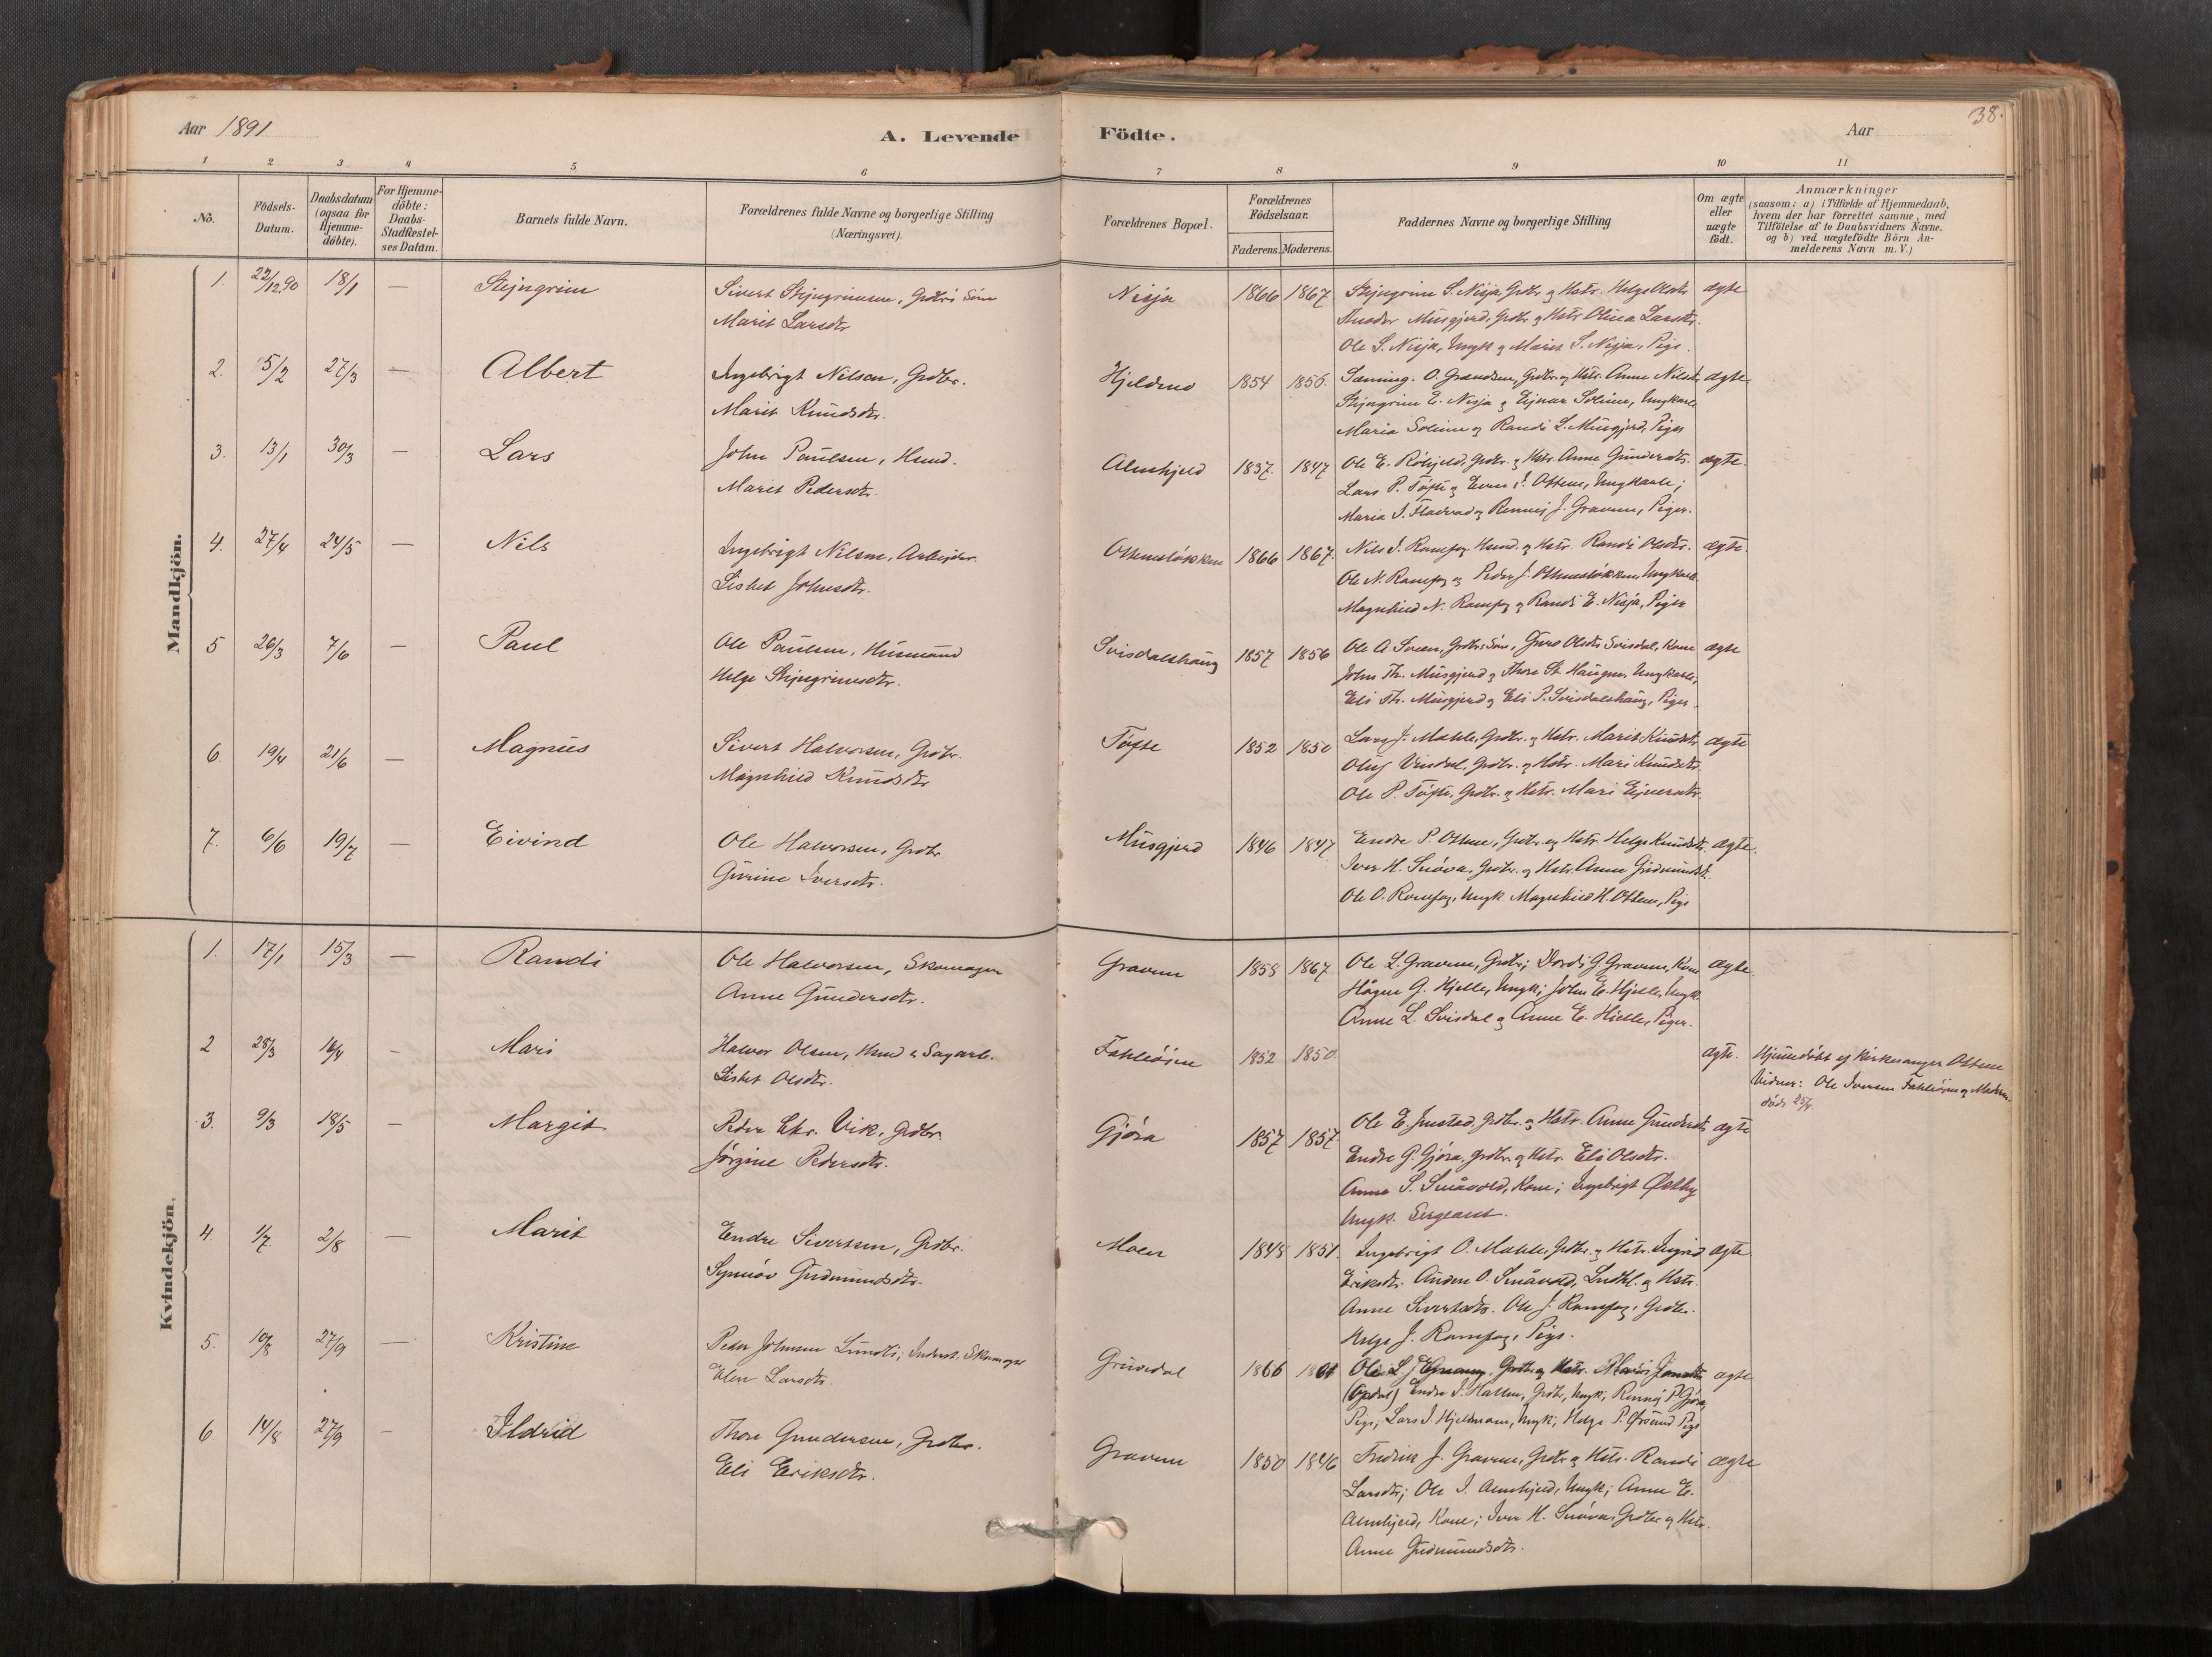 Aar 1891
A. Levende Födte.
Aar
38.
1 2 3 4 5 6 7 8 9 10 11
No.
Födsels-Datum.
Daabsdatum (ogsaa for Hjemmedöbte).
For Hjemmedöbte: Daabs-Stadfæstelses Datum.
Barnets fulde Navn.
Forældrenes fulde Navne og borgerlige Stilling (Næringsvei).
Forældrenes Bopæl.
Forældrenes Födselsaar.
Faderens. Moderens.
Faddernes Navne og borgerlige Stilling
Om ægte eller uægte födt.
Anmærkninger
(saasom: a) i Tilfælde af Hjemmedaab,
hvem der har forrettet samme, med
Tilföielse af to Daabsvidners Navne.
og b) ved uægtefödte Börn An-
melderens Navn m.V.)
Mandkjön.
1. 22/12 90 18/1 — Stejngrim
Sivert Stejngrimsen, Grdbrs Søn
Marit Larsdtr
Nisja 1866 1867
Stejngrim S. Nisja, Grdbr. og Hstr. Helge Olsdtr ægte
Musgjerd, Grdbr. og Hstr Olina Larsdtr.
Ole S. Nisja, Ungk og Marit S. Nisja, Pige.
2. 5/2 27/3 — Albert
Ingebrigt Nilsen, Grdbr.
Marit Knudsdtr.
Hjeldmo 1854 1856.
O. Grandsen, Grdbr. og Hstr. Anne Nilsdtr ægte
Stejngrim E. Nisja og Ejnar Solum, Ungkarle
Maria Solum og Randi L. Musgjerd, Piger
3. 13/1 30/3 — Lars
John Paulsen, Husmd.
Marit Pedersdtr.
Almskjeld 1837. 1847
Ole E. Röhjeld, Grdbr. og Hstr. Anne Gundersdtr. ægte.
Lars P. Tøfte og Even J. Ottem, Ungkarle;
Maria J. Fladvad og Rønnej J. Gravem, Piger.
4. 27/4 24/5 — Nils
Ingebrigt Nilsen, Arbejder
Lisbet Johnsdtr.
Ottemsløkken 1866 1867.
Nils J. Romfog Husmd. og Hstr. Randi Olsdtr. ægte.
Ole N. Romfog og Peder J. Ottemsløkken, Ungkarle
Magnhild N. Romfog og Randi E. Nisja, Piger
5 26/3 7/6 — Paul
Ole Paulsen, Husmand
Helge Stejngrimsdtr.
Svisdalshaug 1857 1856
Ole A. Sveen, Grdbrs. Søn, Guro Olsdtr Svisdal, Kone ægte
John Th. Musgjerd og Thore St. Haugen, Ungkarle,
Eli Th. Musgjerd og Eli P. Svisdalshaug, Piger.
6. 19/4 21/6 — Magnus
Sivert Halvorsen, Grdbr.
Magnhild Knudsdtr
Tøfte 1852 1850
Lars J. Mahle, Grdbr. og Hstr. Marit Knudsdtr ægte
Oluf Grdbr. og Hstr. Mari Knudsdtr.
Ole P. Tøfte, Grdbr. og Hstr. Mari Ejnersdtr.
7. 6/6 19/7 — Eivind
Ole Halvorsen, Grdbr
Gurine Iversdtr.
Musgjerd 1846 1847
Endre P. Ottem, Grdbr. og Hstr. Helge Knudsdtr. ægte.
Iver H. Snøva, Grdbr. og Hstr. Anne Gudmundsdtr.
Ole O. Romfog, Ungk Magnhild H. Ottem, Pige
Kvindekjön.
1. 17/1 15/3 — Randi
Ole Halvorsen, Skomager
Anne Gundersdtr.
Gravem 1858 1867
Ole L. Gravem, Grdbr; Dordi G Gravem, Kone ægte.
Hågen G. Hjelle, Ungk; John E. Hjelle, Ungk.
Anne L. Svisdal og Anne E. Hjelle, Piger.
2 28/3 16/4 – Mari
Halvor Olsen, Husmd & Sagarb.
Lisbet Olsdtr.
Fahleøien 1852 1850. ægte.
Hjemmedøbt af Kirkesanger Ottem
Vidner: Ole Iversen Fahleøien og Moderen.
død 25/4.
3. 9/3 18/5 – Margit
Peder Chr. Vik, Grdbr.
Jørgine Pedersdtr.
Gjøra 1857 1857
Ole E. Jnsted, Grdbr. og Hstr. Anne Gundersdtr ægte
Endre G. Gjøra, Grdbr. og Hstr. Eli Olsdtr.
Anne S. Småvold, Kone; Ingebrigt Østby
Ungk. Sergeant.
4. 1/7. 2/8 — Marit
Endre Sivertsen, Grdbr.
Synnøv Gudmundsdtr.
Moen 1848 1851.
Ingebrigt O. Mahle, Grdbr. og Hstr. Ingrid ægte
Eriksdtr. Anders O. Småvold, og Hstr.
Anne Sivertsdtr. Ole J. Romfog, Grdbr.
Helge J. Romfog, Pige.
5. 10/8 27/9 — Kristine
Peder Johnsen Lundli, Inderst. Skomager
Elen Larsdtr.
Gruvedal 1866 1861
Ole L. Grdbr. og Hstr. ægte
(Opdal) Endre J. Hallen, Grdbr, Ungk; Rønnøj P. Gjøra,
Pige; Lars J. Hjellmo, Ungk; Helge P. Ørsund Pige
6 14/8 27/9 – Ildrid
Thore Gundersen, Grdbr.
Eli Eriksdtr.
Gravem 1850 1846
Fredrik J. Gravem, Grdbr. og Hstr. Randi ægte
Larsdtr; Ole J. Almskjeld, Ungk; Anne E.
Almskjeld, Kone; Iver H. Snøva, Grdbr og Hstr.
Anne Gudmundsdtr.